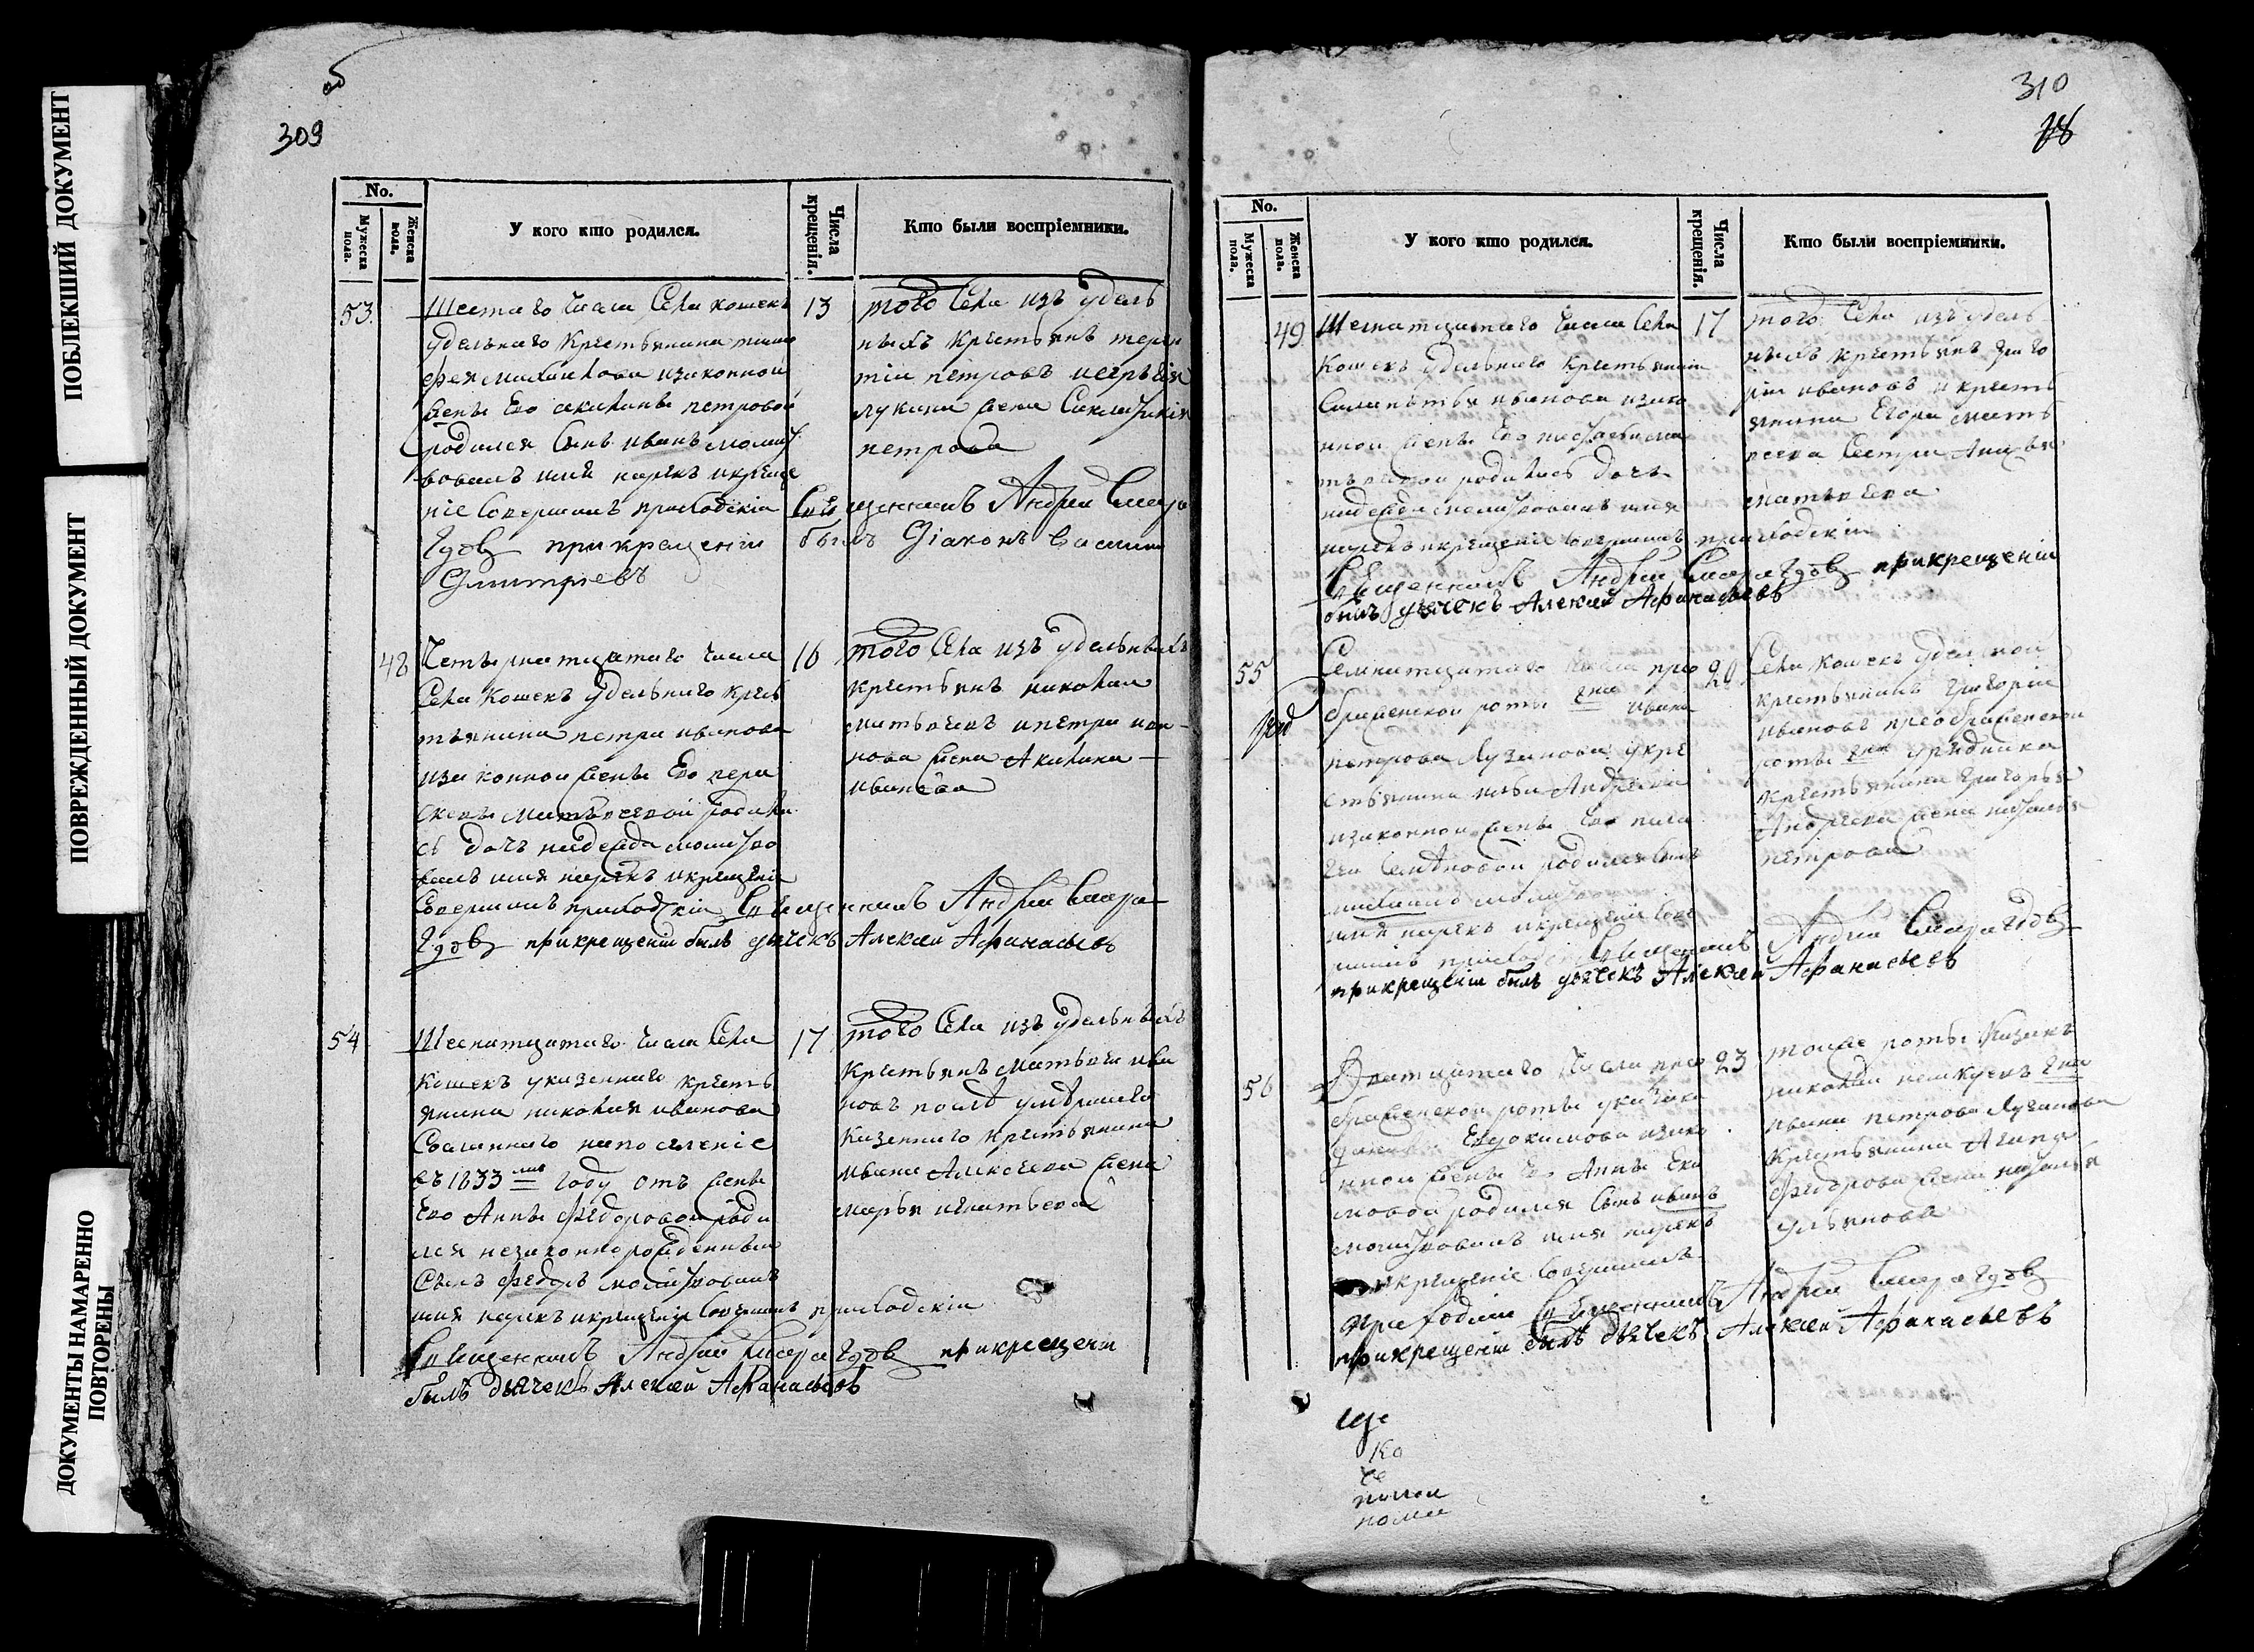 ПОБЛЕКШИЙ ДОКУМЕНТ
ПОВРЕЖДЕННЫЙ ДОКУМЕНТ
ДОКУМЕНТЫ НАМАРЕННО
ПОВТОРЕНЫ
об
309
No.
Мужеска пола.
Женска пола.
У кого кто родился.
Числа крещенія.
Кто были воспріемники.
53.
Шестаго числа Села кошекъ
удельнаго крестьянина тимо
фея изаконной
жены Его акилины петровой
родился сынъ иванъ молит
вовалъ имя нарекъ икреще
ніе совершилъ приходскіи Свя
щенникъ Андрей Смара
гдовъ прикрещеніи былъ Діаконъ Василий
Димитріевъ
13
того Села изъ удель
ныхъ крестьянъ терен
тіи петровъ игорьгія
лукина жена
петрова
48
Четырнатцатаго числа
Села Кошекъ удельнаго крес
тьянина петра иванова
изаконной жены Его пара
скевы матвеевой родила
сь дочь надежда молитво
валъ имя нарекъ икрещеніе
Совершилъ приходскіи Священникъ Андрей Смара
гдовъ прикрещеніи былъ дьячекъ Алексей Афанасьевъ
16
того Села изъ удельныхъ
крестьянъ николаи
матвеевъ ипетра ива
нова жена Акилина
иванова
54
Шеснатцатаго числа Села
Кошекъ указеннаго кресть
янина николая иванова
Сосланнаго напоселеніе
въ 1833мъ году отъ жены
Его Анны Федоровой роди
лся незаконнорожденныи
Сынъ Федоръ молитвовалъ
имя нарекъ икрещеніе совершилъ приходскіи
Священникъ Андрей Смарагдовъ прикрещеніи
былъ дьячекъ Алексей Афанасьевъ
17
того Села изъ удельныхъ
Крестьянъ матвеи ива
новъ после умершаго
Казеннаго крестьянина
ивана Алексеева жена
марья игнатьева
310
78
No.
Мужеска пола.
Женска пола.
У кого кто родился.
Числа крещенія.
Кто были воспріемники.
49
Шеснатцатаго числа Села
Кошекъ удельнаго крестьянина
иванова изако
нной жены Его
родилась дочь
надежда молитвовалъ имя
нарекъ икрещеніе совершилъ приходскіи
Священникъ Андрей Смарагдовъ прикрещеніи
былъ дьячекъ Алексей Афанасьевъ
17
того Села изъ удель
ныхъ крестьянъ григо
рій ивановъ икресть
янина Егора матв
еева Сестра
матвеева
55
Семнатцатаго числа прео
браженской роты гна ивана
петрова Лузанова укре
стьянина ильи Андреева
изаконной жены Его пела
геи Семеновой родился сынъ
михаилъ
имя нарекъ икрещеніе сове
ршилъ приходскіи Священникъ Андрей Смарагдовъ
прикрещеніи былъ дьячекъ Алексей Афанасьевъ
20
Села Кошекъ удельной
крестьянинъ Григорій
ивановъ преображенской
роты гна
крестьянина Григорья
Андреева жена наталья
петрова
56
Дватцатаго числа прео
браженской роты указака
Евдокимова изако
нной жены Его Анны Еки
мовой родился сынъ иванъ
молитвовалъ имя нарекъ
икрещеніе совершилъ
приходскіи Священникъ Андрей Смарагдовъ
прикрещеніи былъ дьячекъ Алексей Афанасьевъ
23
тоиже роты Казакъ
николаи гна
ивана петрова Лузанова
Крестьянина Агапа
Федорова жена наталья
ульянова
ще
ко
че